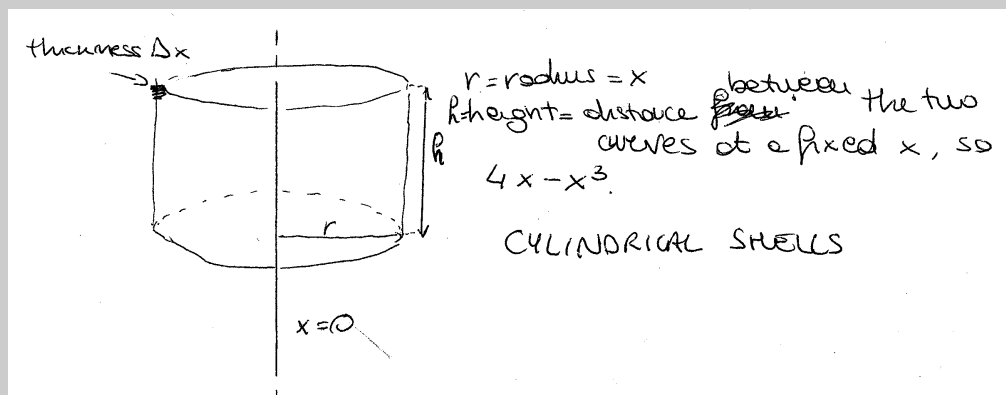 thickness Δx
r = radius = x
h=height = distance between the two
curves at a fixed x, so
4x - x³.
h
r
CYLINDRICAL SHELLS
x=0